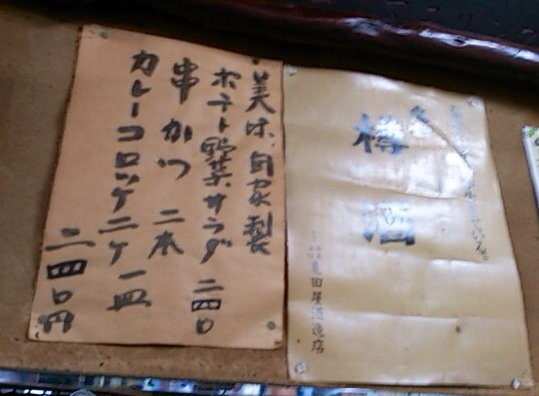 美味、自家製
ポテト野菜サラダ 二四〇
串かつ 二本
カレーコロッケ二ケ 一皿
二四〇円
樽酒
亀田屋酒造店